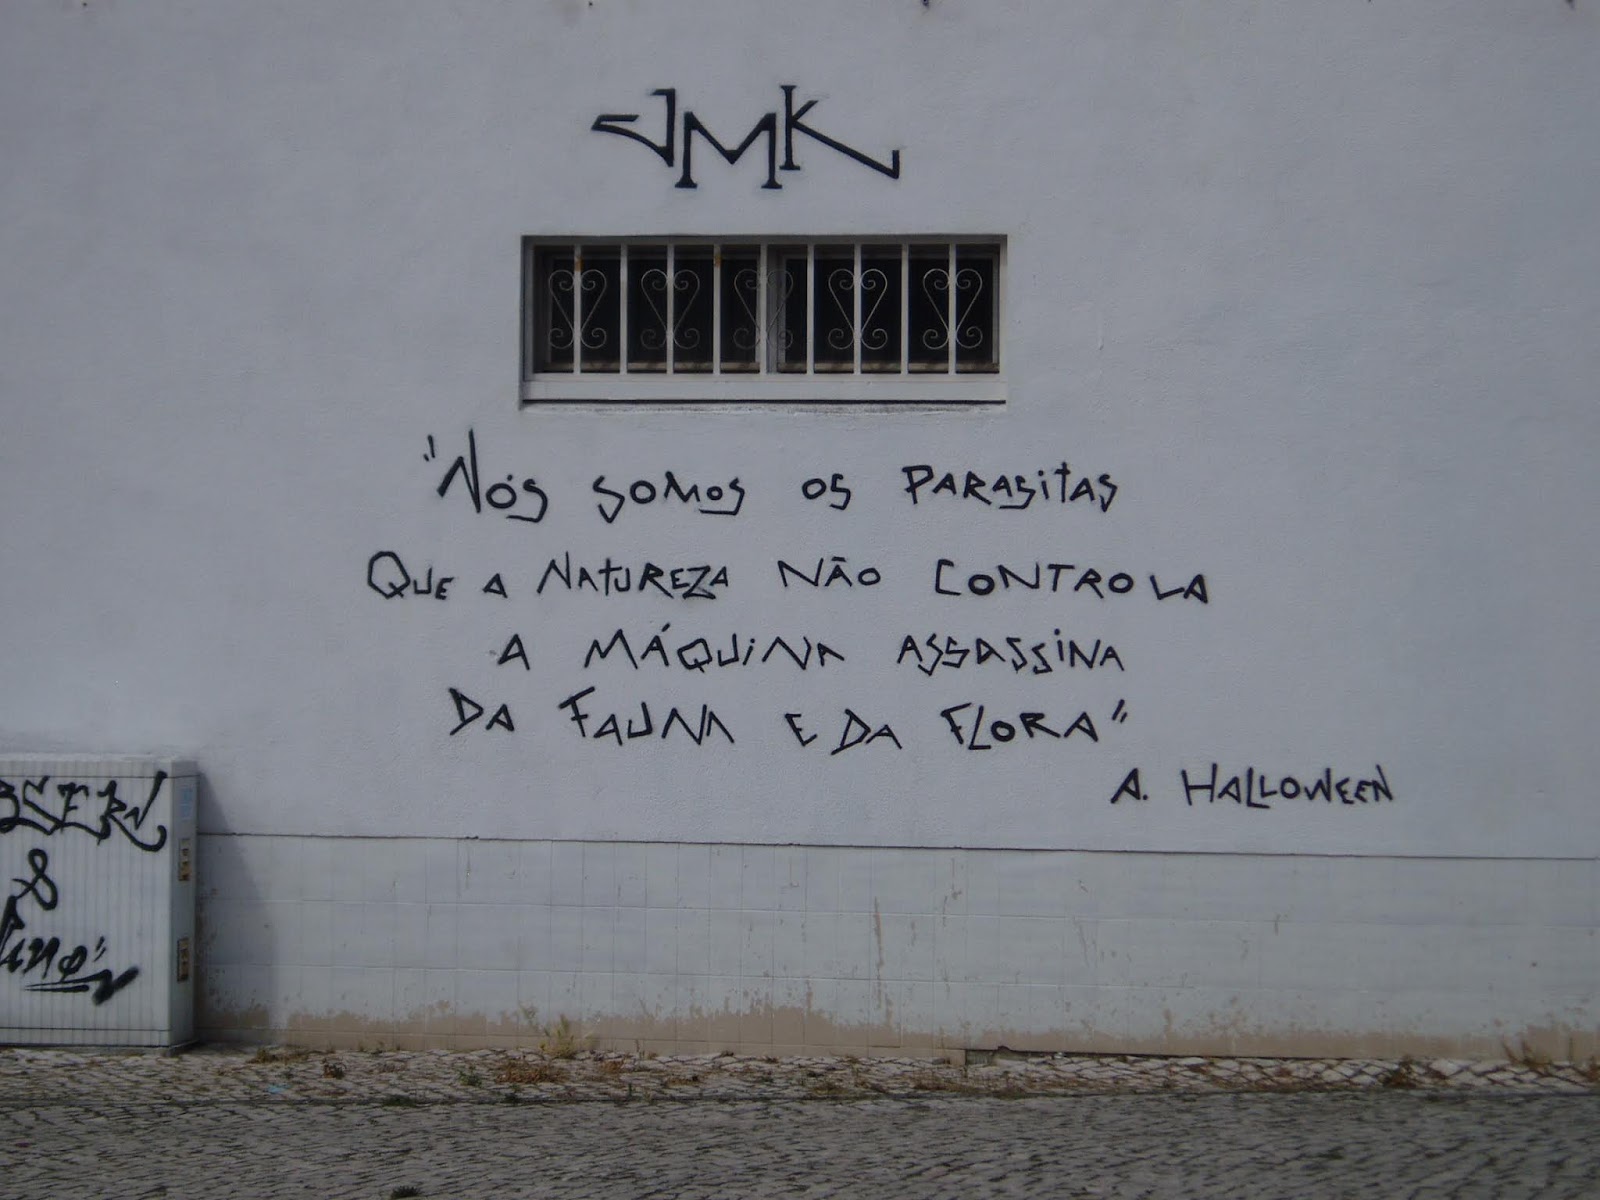 JMK
"Nós somos os parasitas
Que a Natureza não controla
a máquina assassina
da Fauna e da Flora"
A. Halloween
&